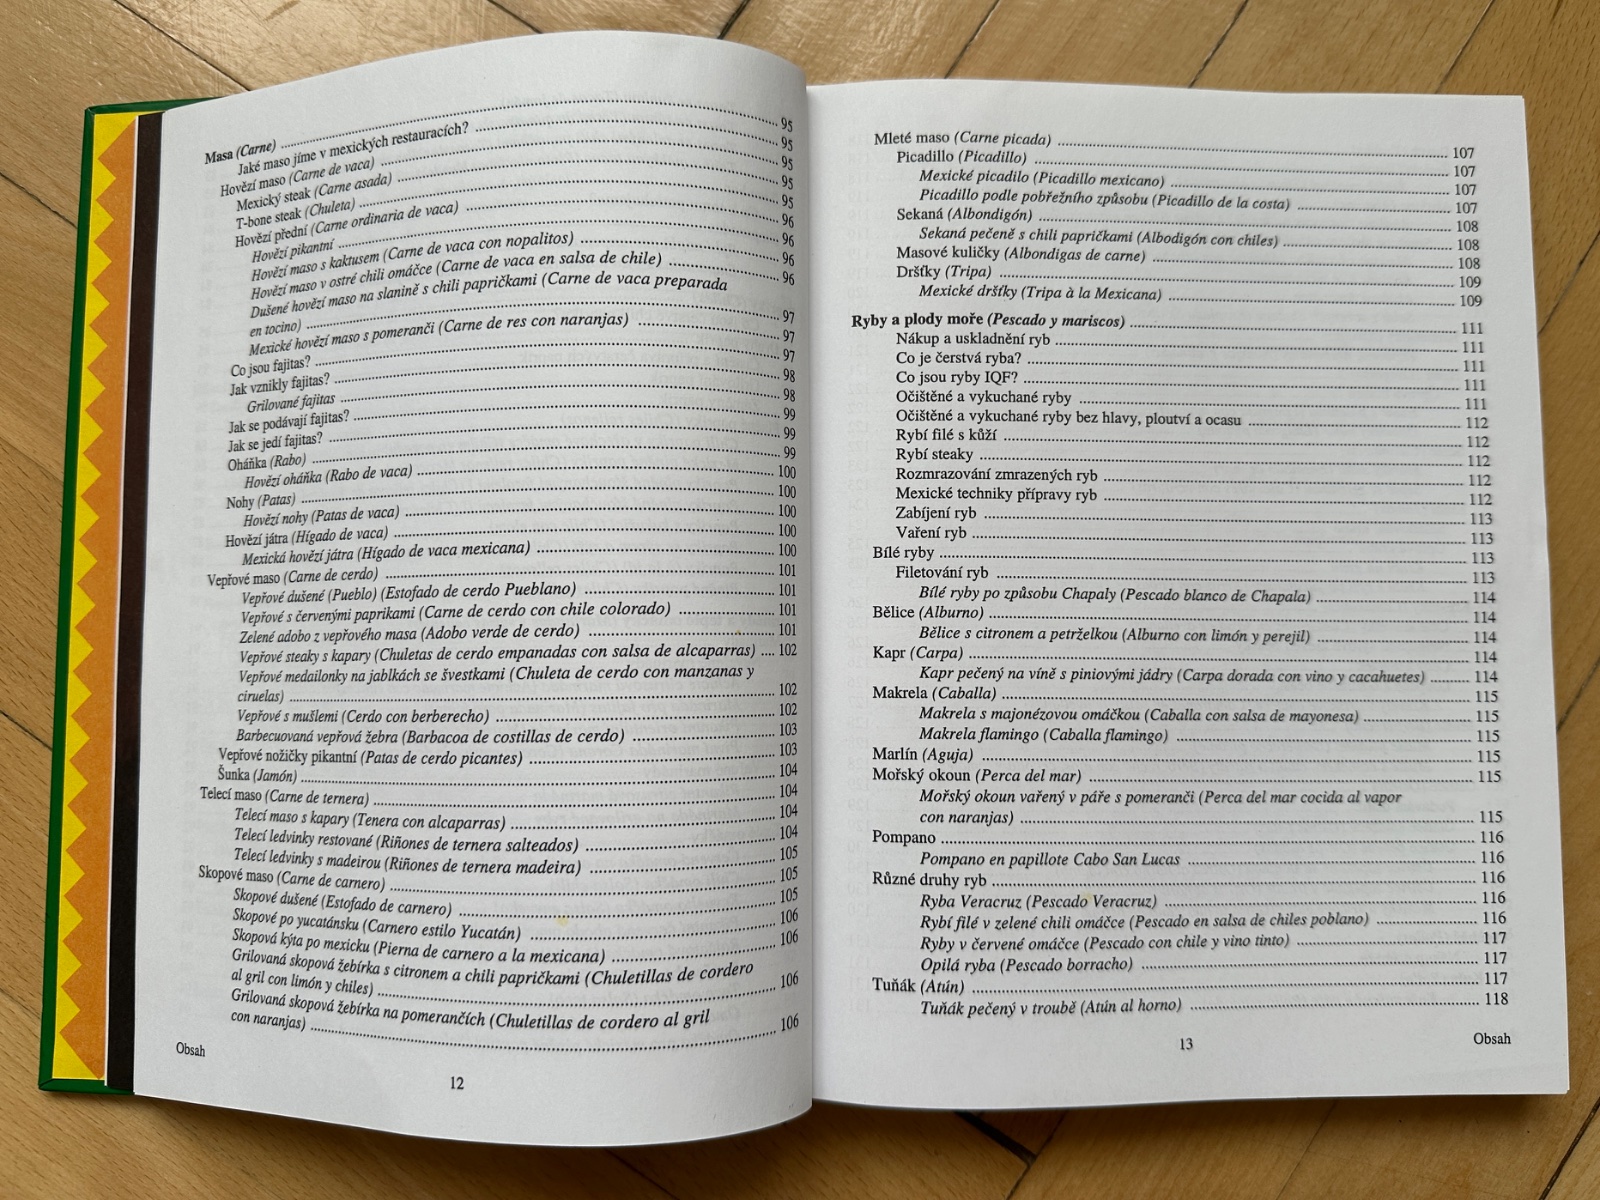 Masa (Carne) ... 95
Jaké maso jíme v mexických restauracích? ... 95
Hovězí maso (Carne de vaca) ... 95
Mexický steak (Carne asada) ... 95
T-bone steak (Chuleta) ... 95
Hovězí přední (Carne ordinaria de vaca) ... 96
Hovězí pikantní ... 96
Hovězí maso s kaktusem (Carne de vaca con nopalitos) ... 96
Hovězí maso v ostré chili omáčce (Carne de vaca en salsa de chile) ... 96
Dušené hovězí maso na slanině s chili papričkami (Carne de vaca preparada
en tocino) ... 97
Mexické hovězí maso s pomeranči (Carne de res con naranjas) ... 97
Co jsou fajitas? ... 97
Jak vznikly fajitas? ... 98
Grilované fajitas ... 98
Jak se podávají fajitas? ... 99
Jak se jedí fajitas? ... 99
Oháňka (Rabo) ... 99
Hovězí oháňka (Rabo de vaca) ... 100
Nohy (Patas) ... 100
Hovězí nohy (Patas de vaca) ... 100
Hovězí játra (Hígado de vaca) ... 100
Mexická hovězí játra (Hígado de vaca mexicana) ... 100
Vepřové maso (Carne de cerdo) ... 101
Vepřové dušené (Pueblo) (Estofado de cerdo Pueblano) ... 101
Vepřové s červenými paprikami (Carne de cerdo con chile colorado) ... 101
Zelené adobo z vepřového masa (Adobo verde de cerdo) ... 101
Vepřové steaky s kapary (Chuletas de cerdo empanadas con salsa de alcaparras) .... 102
Vepřové medailonky na jablkách se švestkami (Chuleta de cerdo con manzanas y
ciruelas) ... 102
Vepřové s mušlemi (Cerdo con berberecho) ... 102
Barbecuovaná vepřová žebra (Barbacoa de costillas de cerdo) ... 103
Vepřové nožičky pikantní (Patas de cerdo picantes) ... 103
Šunka (Jamón) ... 104
Telecí maso (Carne de ternera) ... 104
Telecí maso s kapary (Tenera con alcaparras) ... 104
Telecí ledvinky restované (Riñones de ternera salteados) ... 104
Telecí ledvinky s madeirou (Riñones de ternera madeira) ... 105
Skopové maso (Carne de carnero) ... 105
Skopové dušené (Estofado de carnero) ... 105
Skopové po yucatánsku (Carnero estilo Yucatán) ... 106
Skopová kýta po mexicku (Pierna de carnero a la mexicana) ... 106
Grilovaná skopová žebírka s citronem a chili papričkami (Chuletillas de cordero
al gril con limón y chiles) ... 106
Grilovaná skopová žebírka na pomerančích (Chuletillas de cordero al gril
con naranjas) ... 106
Obsah
12
Mleté maso (Carne picada) ... 107
Picadillo (Picadillo) ... 107
Mexické picadilo (Picadillo mexicano) ... 107
Picadillo podle pobřežního způsobu (Picadillo de la costa) ... 107
Sekaná (Albondigón) ... 108
Sekaná pečeně s chili papričkami (Albodigón con chiles) ... 108
Masové kuličky (Albondigas de carne) ... 108
Dršťky (Tripa) ... 109
Mexické dršťky (Tripa à la Mexicana) ... 109
Ryby a plody moře (Pescado y mariscos) ... 111
Nákup a uskladnění ryb ... 111
Co je čerstvá ryba? ... 111
Co jsou ryby IQF? ... 111
Očištěné a vykuchané ryby ... 111
Očištěné a vykuchané ryby bez hlavy, ploutví a ocasu ... 112
Rybí filé s kůží ... 112
Rybí steaky ... 112
Rozmrazování zmrazených ryb ... 112
Mexické techniky přípravy ryb ... 112
Zabíjení ryb ... 113
Vaření ryb ... 113
Bílé ryby ... 113
Filetování ryb ... 113
Bílé ryby po způsobu Chapaly (Pescado blanco de Chapala) ... 114
Bělice (Alburno) ... 114
Bělice s citronem a petrželkou (Alburno con limón y perejil) ... 114
Kapr (Carpa) ... 114
Kapr pečený na víně s piniovými jádry (Carpa dorada con vino y cacahuetes) ... 114
Makrela (Caballa) ... 115
Makrela s majonézovou omáčkou (Caballa con salsa de mayonesa) ... 115
Makrela flamingo (Caballa flamingo) ... 115
Marlín (Aguja) ... 115
Mořský okoun (Perca del mar) ... 115
Mořský okoun vařený v páře s pomeranči (Perca del mar cocida al vapor
con naranjas) ... 115
Pompano ... 116
Pompano en papillote Cabo San Lucas ... 116
Různé druhy ryb ... 116
Ryba Veracruz (Pescado Veracruz) ... 116
Rybí filé v zelené chili omáčce (Pescado en salsa de chiles poblano) ... 116
Ryby v červené omáčce (Pescado con chile y vino tinto) ... 117
Opilá ryba (Pescado borracho) ... 117
Tuňák (Atún) ... 117
Tuňák pečený v troubě (Atún al horno) ... 118
13
Obsah